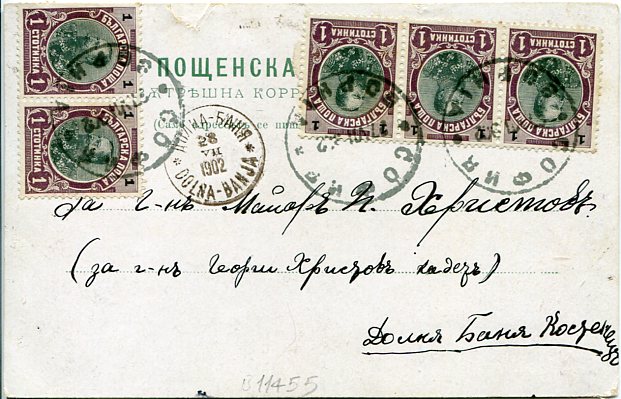 ПОЩЕНСКА
БЪЛГАРСКА ПОЩА
1 СТОТИНКА 1
БЪЛГАРСКА ПОЩА
1 СТОТИНКА 1
БЪЛГАРСКА ПОЩА
1 СТОТИНКА 1
БЪЛГАРСКА ПОЩА
1 СТОТИНКА 1
БЪЛГАРСКА ПОЩА
1 СТОТИНКА 1
СОФИЯ
ДОЛНА-БАНЯ
28
VII
1902
DOLNA-BANJA
За г-нъ Майоръ П. Христовъ
(за г-нъ Георги Христовъ кадетъ)
Долня Баня Костенецъ
11455